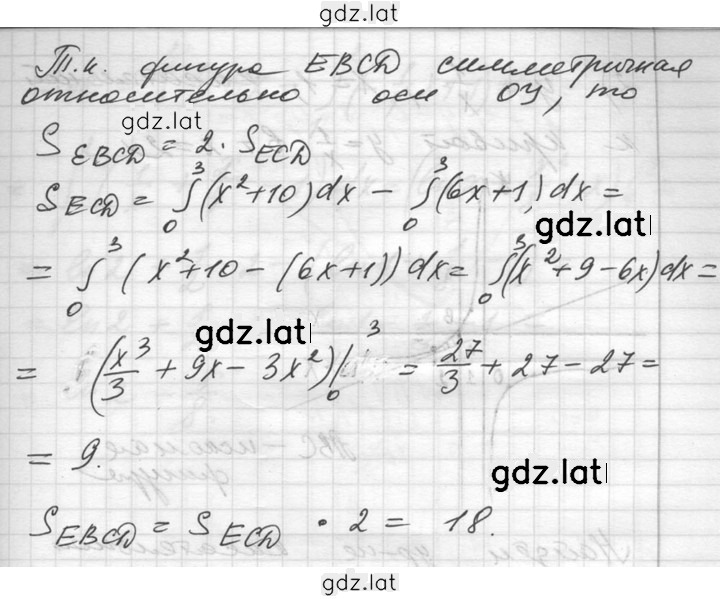 gdz.lat
Т.к. фигура EBCD симметричная
относительно оси OY, то
gdz.lat
S_EBCD = 2 · S_ECD
S_ECD = ∫₀³ (x² + 10) dx − ∫₀³ (6x + 1) dx =
gdz.lat
= ∫₀³ (x² + 10 − (6x + 1)) dx = ∫₀³ (x² + 9 − 6x) dx =
gdz.lat
= (x³/3 + 9x − 3x²) |₀³ = 27/3 + 27 − 27 =
= 9.
gdz.lat
S_EBCD = S_ECD · 2 = 18.
gdz.lat